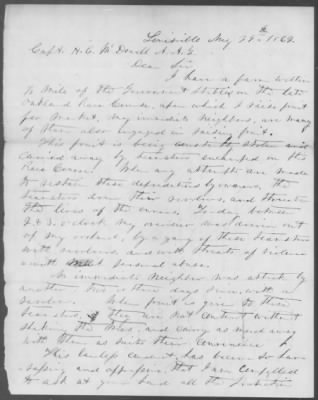 Louisville Aug 22th 1862
Capt. H. C. McDowell A. A. G.
Dear Sir
I have a farm within
½ mile of the Government Stables on the late
Oakland Race Course, upon which I raise fruit
for market. My immediate Neighbors, are many
of them also engaged in raising fruit.
This fruit is being constantly stolen and
carried away by Teamsters encamped on the
Race Course. When any attempts are made
to restrain these depredations by owners, the
teamsters draw their revolvers, and threaten
the lives of the owners. To day between
1 & 2 o'clock My overseer was driven out
of my orchard, by a gang of these teamsters
with revolvers, and with threats of violence
and with personal abuse.
An immediate Neighbor was attack by
another two or three days since, with a
revolver. When fruit is given to these
teamsters, they are not content without
shaking the trees and carry as much away
with them as suits their convenience
This lawless conduct has become so har-
rassing and oppressive that I am compelled
to ask at your hand all the protection